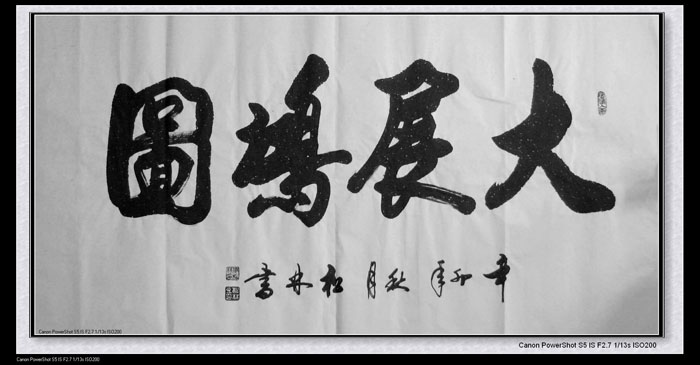 大展鴻圖
辛卯年秋月松林書
Canon PowerShot S5 IS F2.7 1/13s ISO200
Canon PowerShot S5 IS F2.7 1/13s ISO200
Canon PowerShot S5 IS F2.7 1/13s ISO200